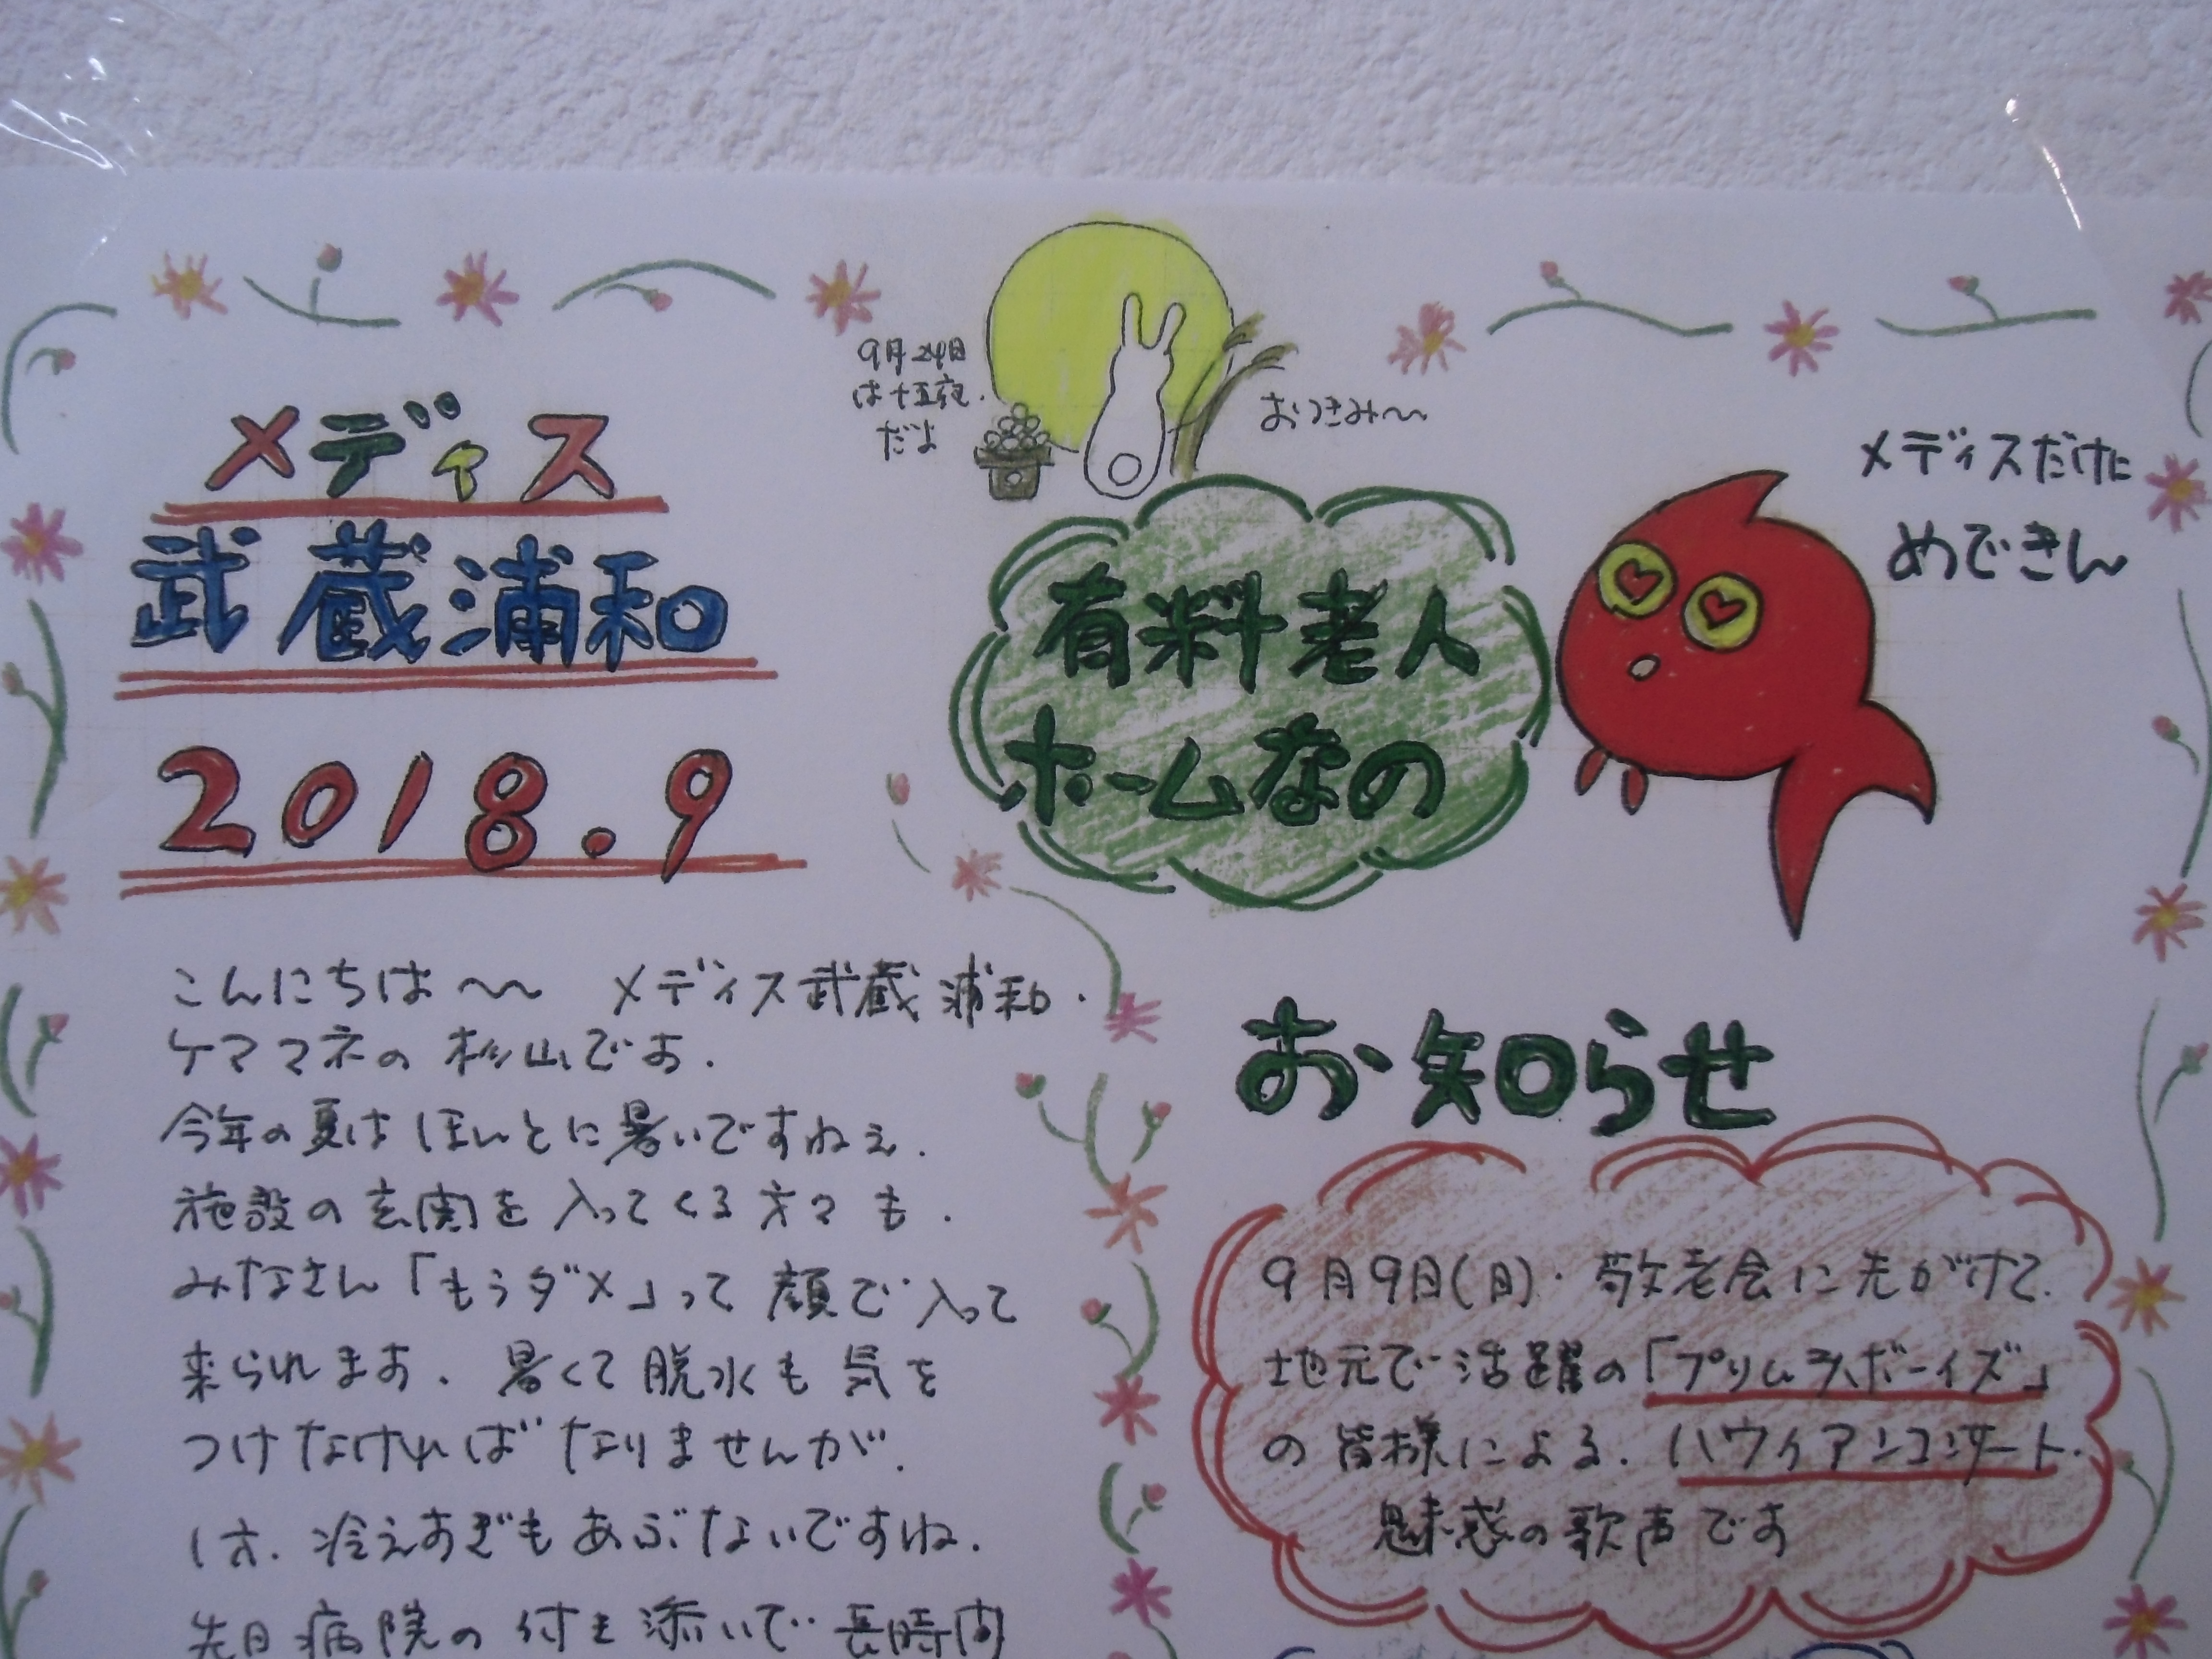 9月24日
は十五夜.
だよ
おつきみ〜〜
メディス
武蔵浦和
2018.9
有料老人
ホームなの
メディスだけに
めできん
こんにちは〜〜 メディス武蔵浦和.
ケママネの杉山です.
今年の夏はほんとに暑いですねぇ.
施設の玄関を入ってくる方々も.
みなさん「もうダメ」って顔で入って
来られます. 暑くて脱水も気を
つけなければなりませんが.
冷えすぎもあぶないですね.
先日病院の付き添いで長時間
お知らせ
9月9日(日)・敬老会に先がけて.
地元で活躍の「プリムラボーイズ」
の皆様による. ハワイアンコンサート.
魅惑の歌声です